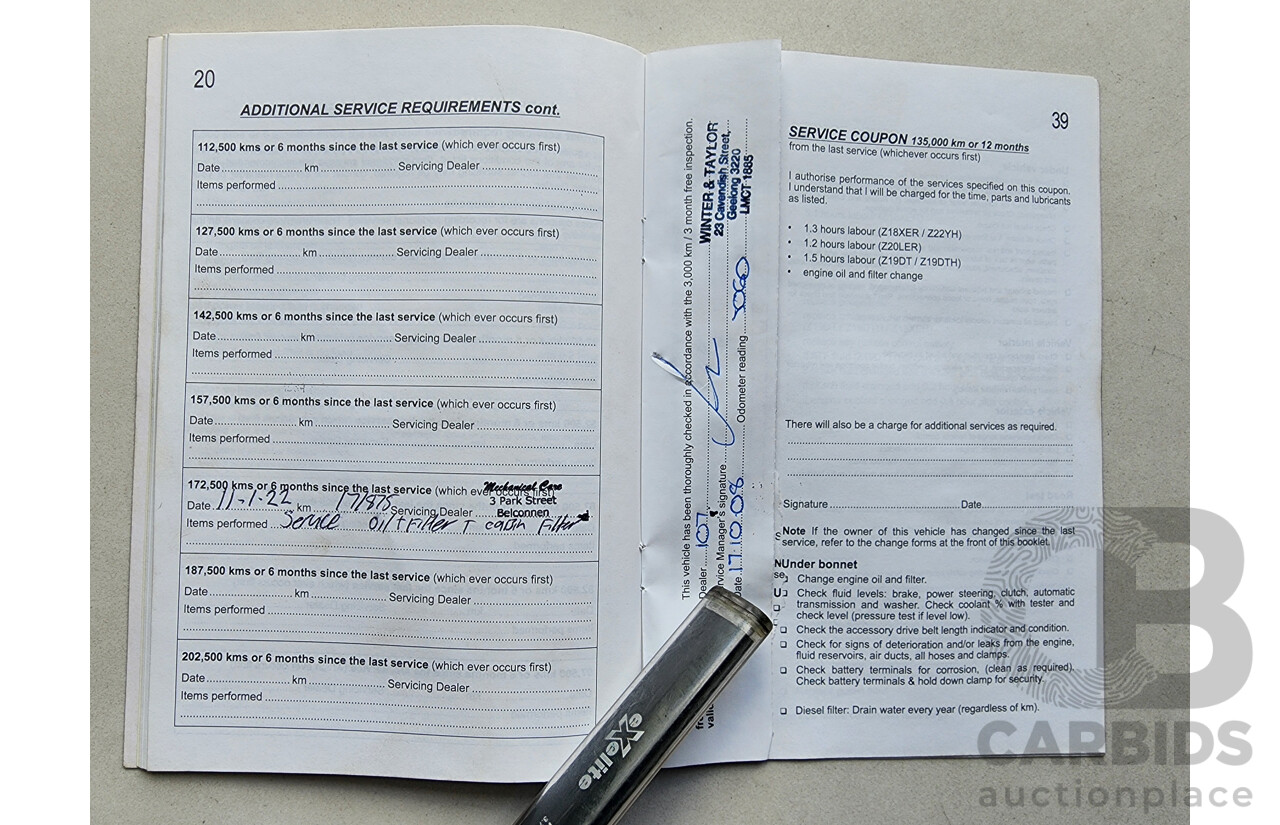 20
ADDITIONAL SERVICE REQUIREMENTS cont.
112,500 kms or 6 months since the last service (which ever occurs first)
Date.................... km ........................ Servicing Dealer ..............................
Items performed ....................................................................
127,500 kms or 6 months since the last service (which ever occurs first)
Date.................... km ........................ Servicing Dealer ..............................
Items performed ....................................................................
142,500 kms or 6 months since the last service (which ever occurs first)
Date.................... km ........................ Servicing Dealer ..............................
Items performed ....................................................................
157,500 kms or 6 months since the last service (which ever occurs first)
Date.................... km ........................ Servicing Dealer ..............................
Items performed ....................................................................
172,500 kms or 6 months since the last service (which ever occurs first)
Mechanical Care
3 Park Street
Belconnen
Date 11-1-22 km Servicing Dealer
Items performed Service oil + Filter + cabin Filter
187,500 kms or 6 months since the last service (which ever occurs first)
Date.................... km ........................ Servicing Dealer ..............................
Items performed ....................................................................
202,500 kms or 6 months since the last service (which ever occurs first)
Date.................... km ........................ Servicing Dealer ..............................
Items performed ....................................................................
This vehicle has been thoroughly checked in accordance with the 3,000 km / 3 month free inspection.
WINTER & TAYLOR
23 Cavendish Street,
Geelong 3220
LMCT 1885
Dealer 107
Service Manager's signature
Date 17.10.08 Odometer reading
eXelite
39
SERVICE COUPON 135,000 km or 12 months
from the last service (whichever occurs first)
I authorise performance of the services specified on this coupon.
I understand that I will be charged for the time, parts and lubricants
as listed.
• 1.3 hours labour (Z18XER / Z22YH)
• 1.2 hours labour (Z20LER)
• 1.5 hours labour (Z19DT / Z19DTH)
• engine oil and filter change
There will also be a charge for additional services as required.
Signature ................................ Date............................
Note If the owner of this vehicle has changed since the last
service, refer to the change forms at the front of this booklet.
Under bonnet
❏ Change engine oil and filter.
❏ Check fluid levels: brake, power steering, clutch, automatic
transmission and washer. Check coolant % with tester and
check level (pressure test if level low).
❏ Check the accessory drive belt length indicator and condition.
❏ Check for signs of deterioration and/or leaks from the engine,
fluid reservoirs, air ducts, all hoses and clamps.
❏ Check battery terminals for corrosion, (clean as required).
Check battery terminals & hold down clamp for security.
❏ Diesel filter: Drain water every year (regardless of km).
CARBIDS
auctionplace